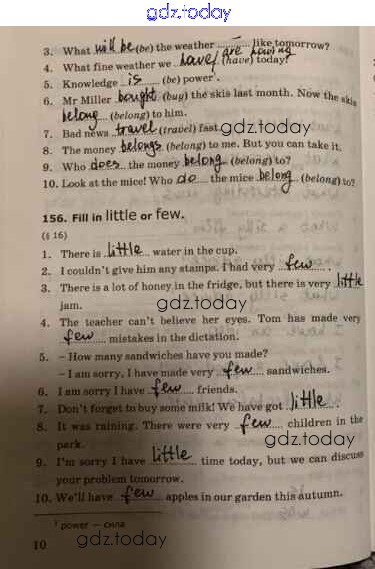 gdz.today
3. What will be (be) the weather like tomorrow?
4. What fine weather we have/ are having (have) today!
5. Knowledge is (be) power¹.
6. Mr Miller bought (buy) the skis last month. Now the skis
belong (belong) to him.
7. Bad news travel (travel) fast.
gdz.today
8. The money belongs (belong) to me. But you can take it.
9. Who does the money belong (belong) to?
10. Look at the mice! Who do the mice belong (belong) to?
156. Fill in little or few.
(§ 16)
1. There is little water in the cup.
2. I couldn't give him any stamps. I had very few.
3. There is a lot of honey in the fridge, but there is very little
jam.
gdz.today
4. The teacher can't believe her eyes. Tom has made very
few mistakes in the dictation.
5. – How many sandwiches have you made?
– I am sorry, I have made very few sandwiches.
6. I am sorry I have few friends.
7. Don't forget to buy some milk! We have got little.
8. It was raining. There were very few children in the
park.
gdz.today
9. I'm sorry I have little time today, but we can discuss
your problem tomorrow.
10. We'll have few apples in our garden this autumn.
¹ power — сила
10
gdz.today